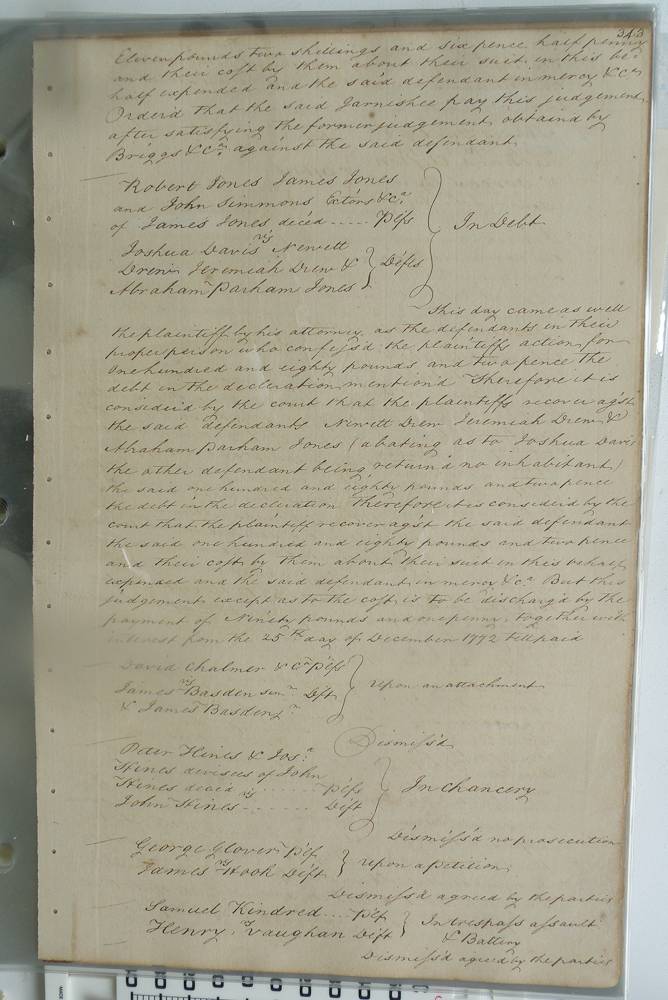 343
Eleven pounds two shillings and six pence half penny
and their cost by them about their suit in this be
half expended and the said defendant in mercy &Ca
Order'd that the said Garnishee pay this judgement
after satisfying the former judgement obtaind by
Briggs & Ca. against the said defendant
Robert Jones James Jones
and John Simmons Exctors &Ca.
of James Jones deced ..... Plfs
In Debt
vs
Joshua Davis Newett
Drew Jeremiah Drew &
Abraham Parham Jones
Defts
This day came as well
the plaintiff by his attorney as the defendants in their
proper person who confess'd the plaintiffs action for
One hundred and eighty pounds and two pence the
debt in the decleration mention'd Therefore it is
consider'd by the court that the plaintiffs recover agst
the said defendants Newett Drew Jeremiah Drew &
Abraham Parham Jones (abating as to Joshua Davis
the other defendant being return'd no inhabitant)
the said one hundred and eighty pounds and two pence
the debt in the decleration Therefore it is consider'd by the
court that the plaintiff recover agst the said defendant
the said one hundred and eighty pounds and two pence
and their cost by them about their suit in this behalf
expended and the said defendant in mercy &Ca But this
judgement except as to the cost is to be discharg'd by the
payment of Ninety pounds and one penny together with
interest from the 25th day of December 1792 till paid
David Chalmer & Co Plfs
vs
James Basden senr Deft
& James Basden jr
Upon an attachment
Dismiss'd
Peter Hines & Jos.
Hines devisees of John
Hines deced ....... Plfs
vs
John Hines ....... Deft
In Chancery
Dismiss'd no prosecution
George Glover Plf
vs
James Hook Deft
Upon a petition
Dismiss'd agreed by the parties
Samuel Kindred ... Plf
vs
Henry Vaughan Deft
In trespass assault
& Battery
Dismiss'd agreed by the parties